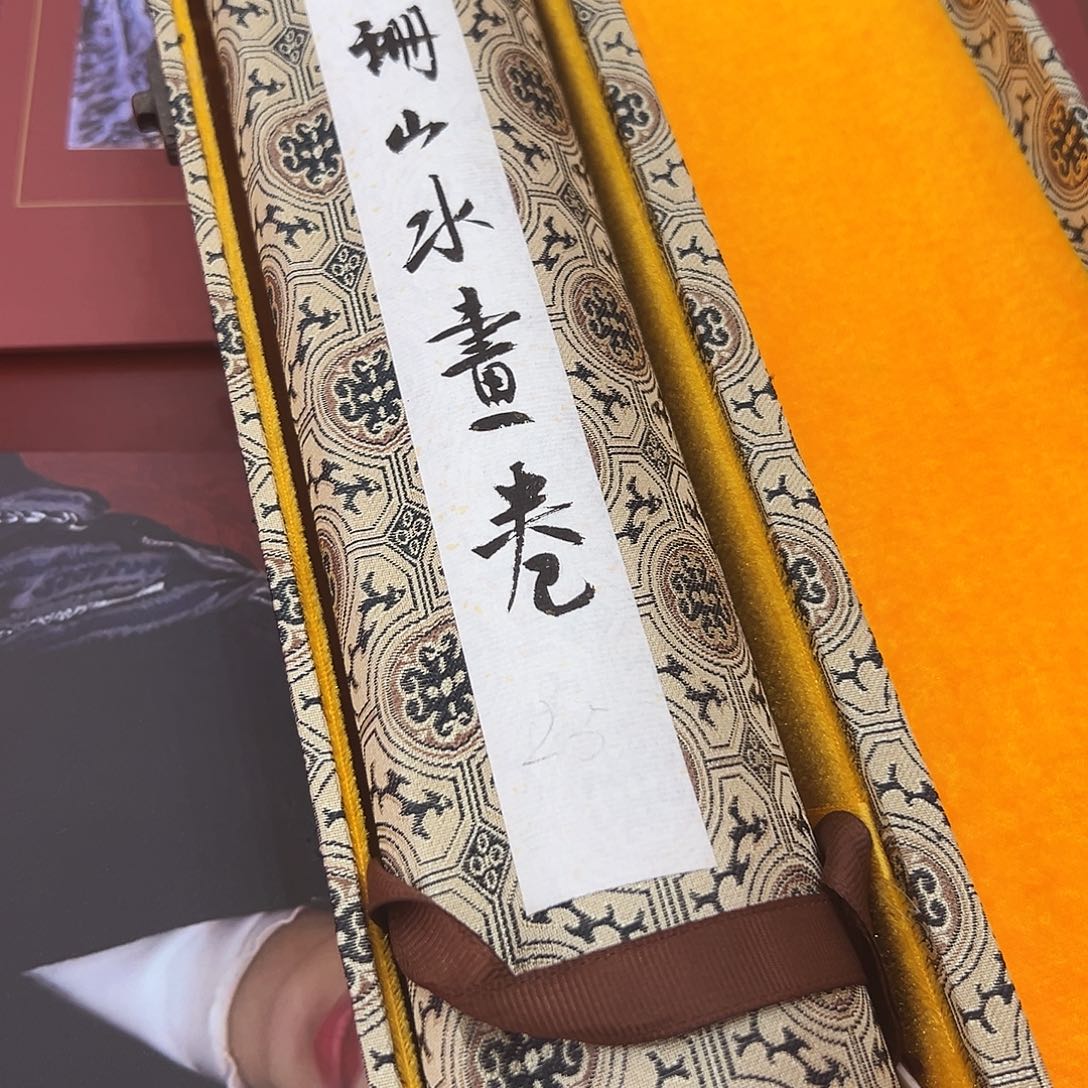 珊山水畫卷
25